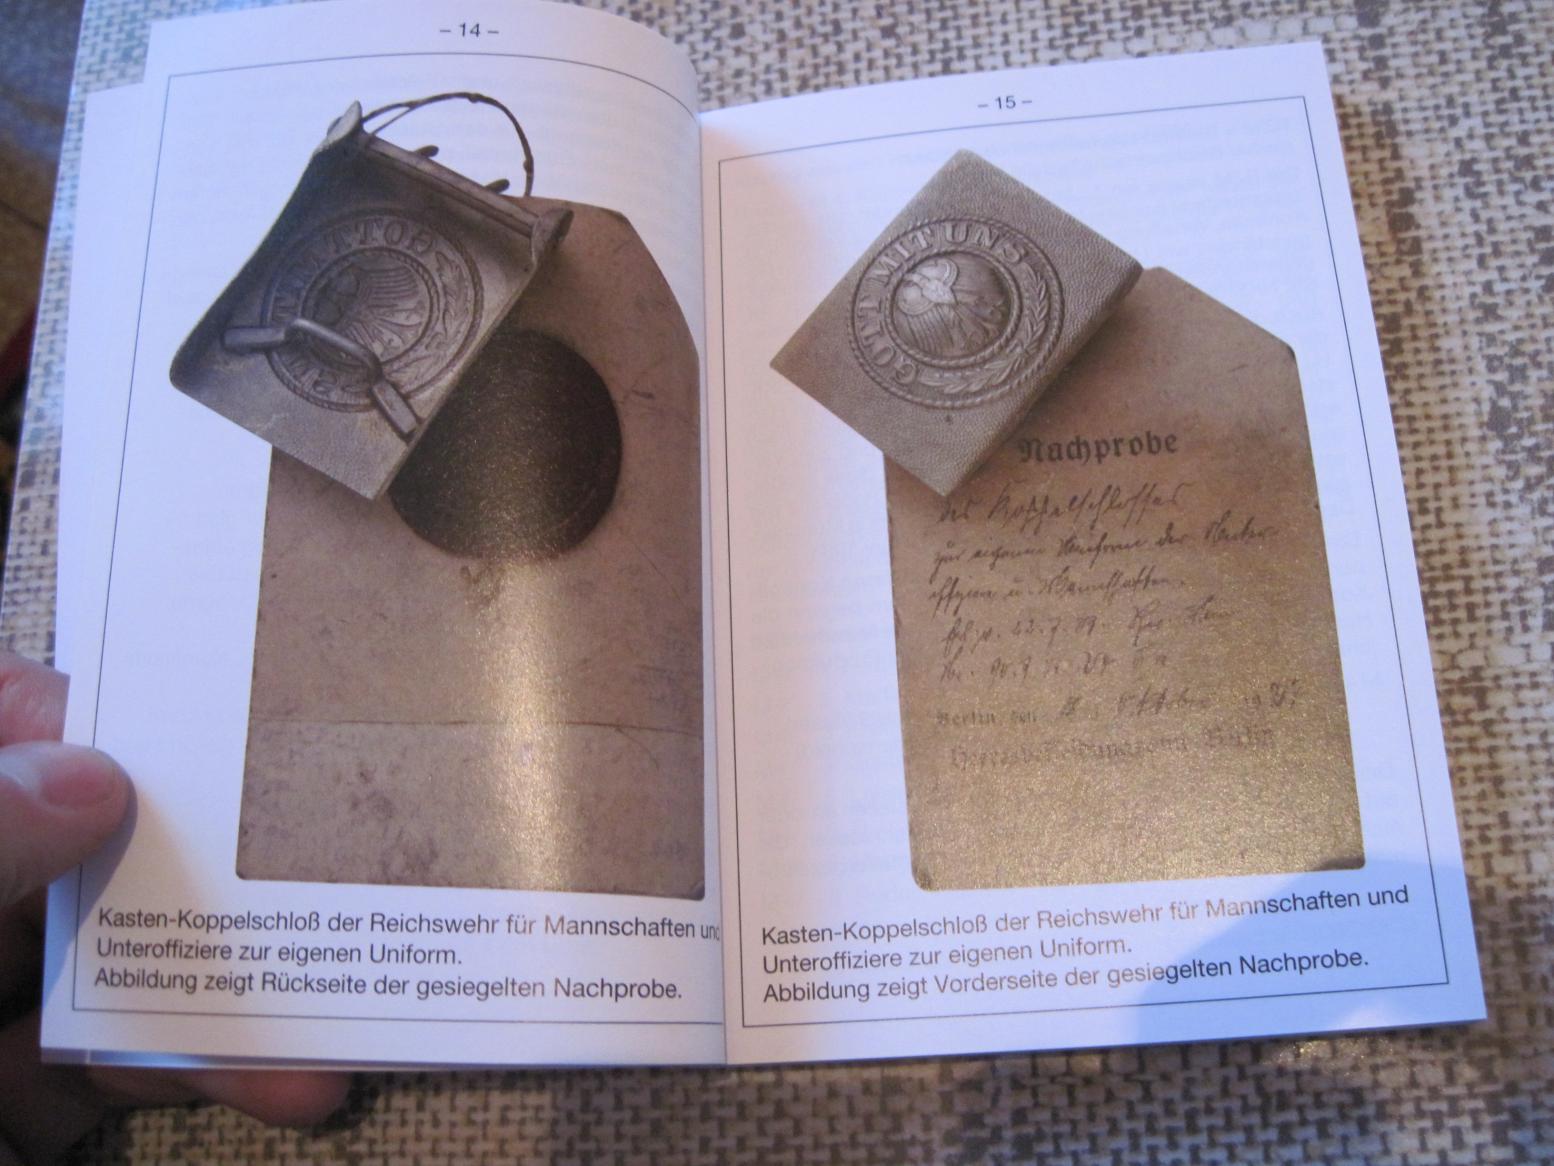 – 14 –
GOTT MIT UNS
Kasten-Koppelschloß der Reichswehr für Mannschaften und
Unteroffiziere zur eigenen Uniform.
Abbildung zeigt Rückseite der gesiegelten Nachprobe.
– 15 –
GOTT MIT UNS
Nachprobe
des Koppelschlosses
zur eigenen Uniform der Unter-
offiziere u. Mannschaften.
Berlin, den
Kasten-Koppelschloß der Reichswehr für Mannschaften und
Unteroffiziere zur eigenen Uniform.
Abbildung zeigt Vorderseite der gesiegelten Nachprobe.